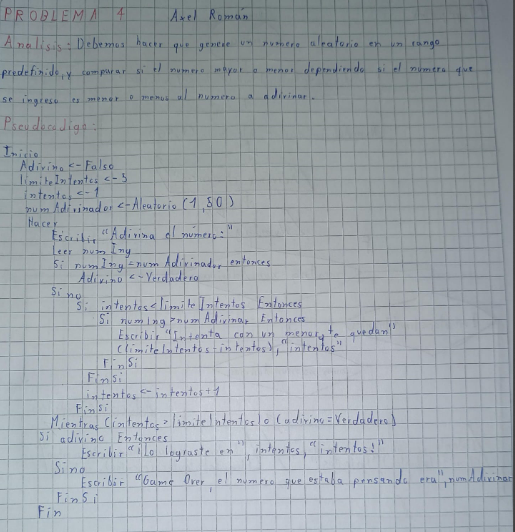 PROBLEMA 4 Axel Román
Analisis: Debemos hacer que genere un numero aleatorio en un rango
predefinido, y comparar si el numero mayor o menor dependiendo si el numero que
se ingreso es menor o menos al numero a adivinar.
Pseudocodigo:
Inicio
Adivino <- Falso
limiteIntentos <- 5
intentos <- 1
numAdivinador <- Aleatorio (1,50)
Hacer
Escribir "Adivina el numero:"
Leer numIng
Si numIng = numAdivinador entonces
Adivino <- Verdadero
Sino
Si intentos < limiteIntentos Entonces
Si numIng > numAdivinar Entonces
Escribir "Intenta con un menor, te quedan"
(limiteIntentos - intentos), "intentos"
FinSi
FinSi
intentos <- intentos + 1
FinSi
Mientras (intentos > limiteIntentos) o (adivino = Verdadero)
Si adivino Entonces
Escribir "¡Lo lograste en", intentos, "intentos!"
Sino
Escribir "Game Over, el numero que estaba pensando era", numAdivinar
FinSi
Fin